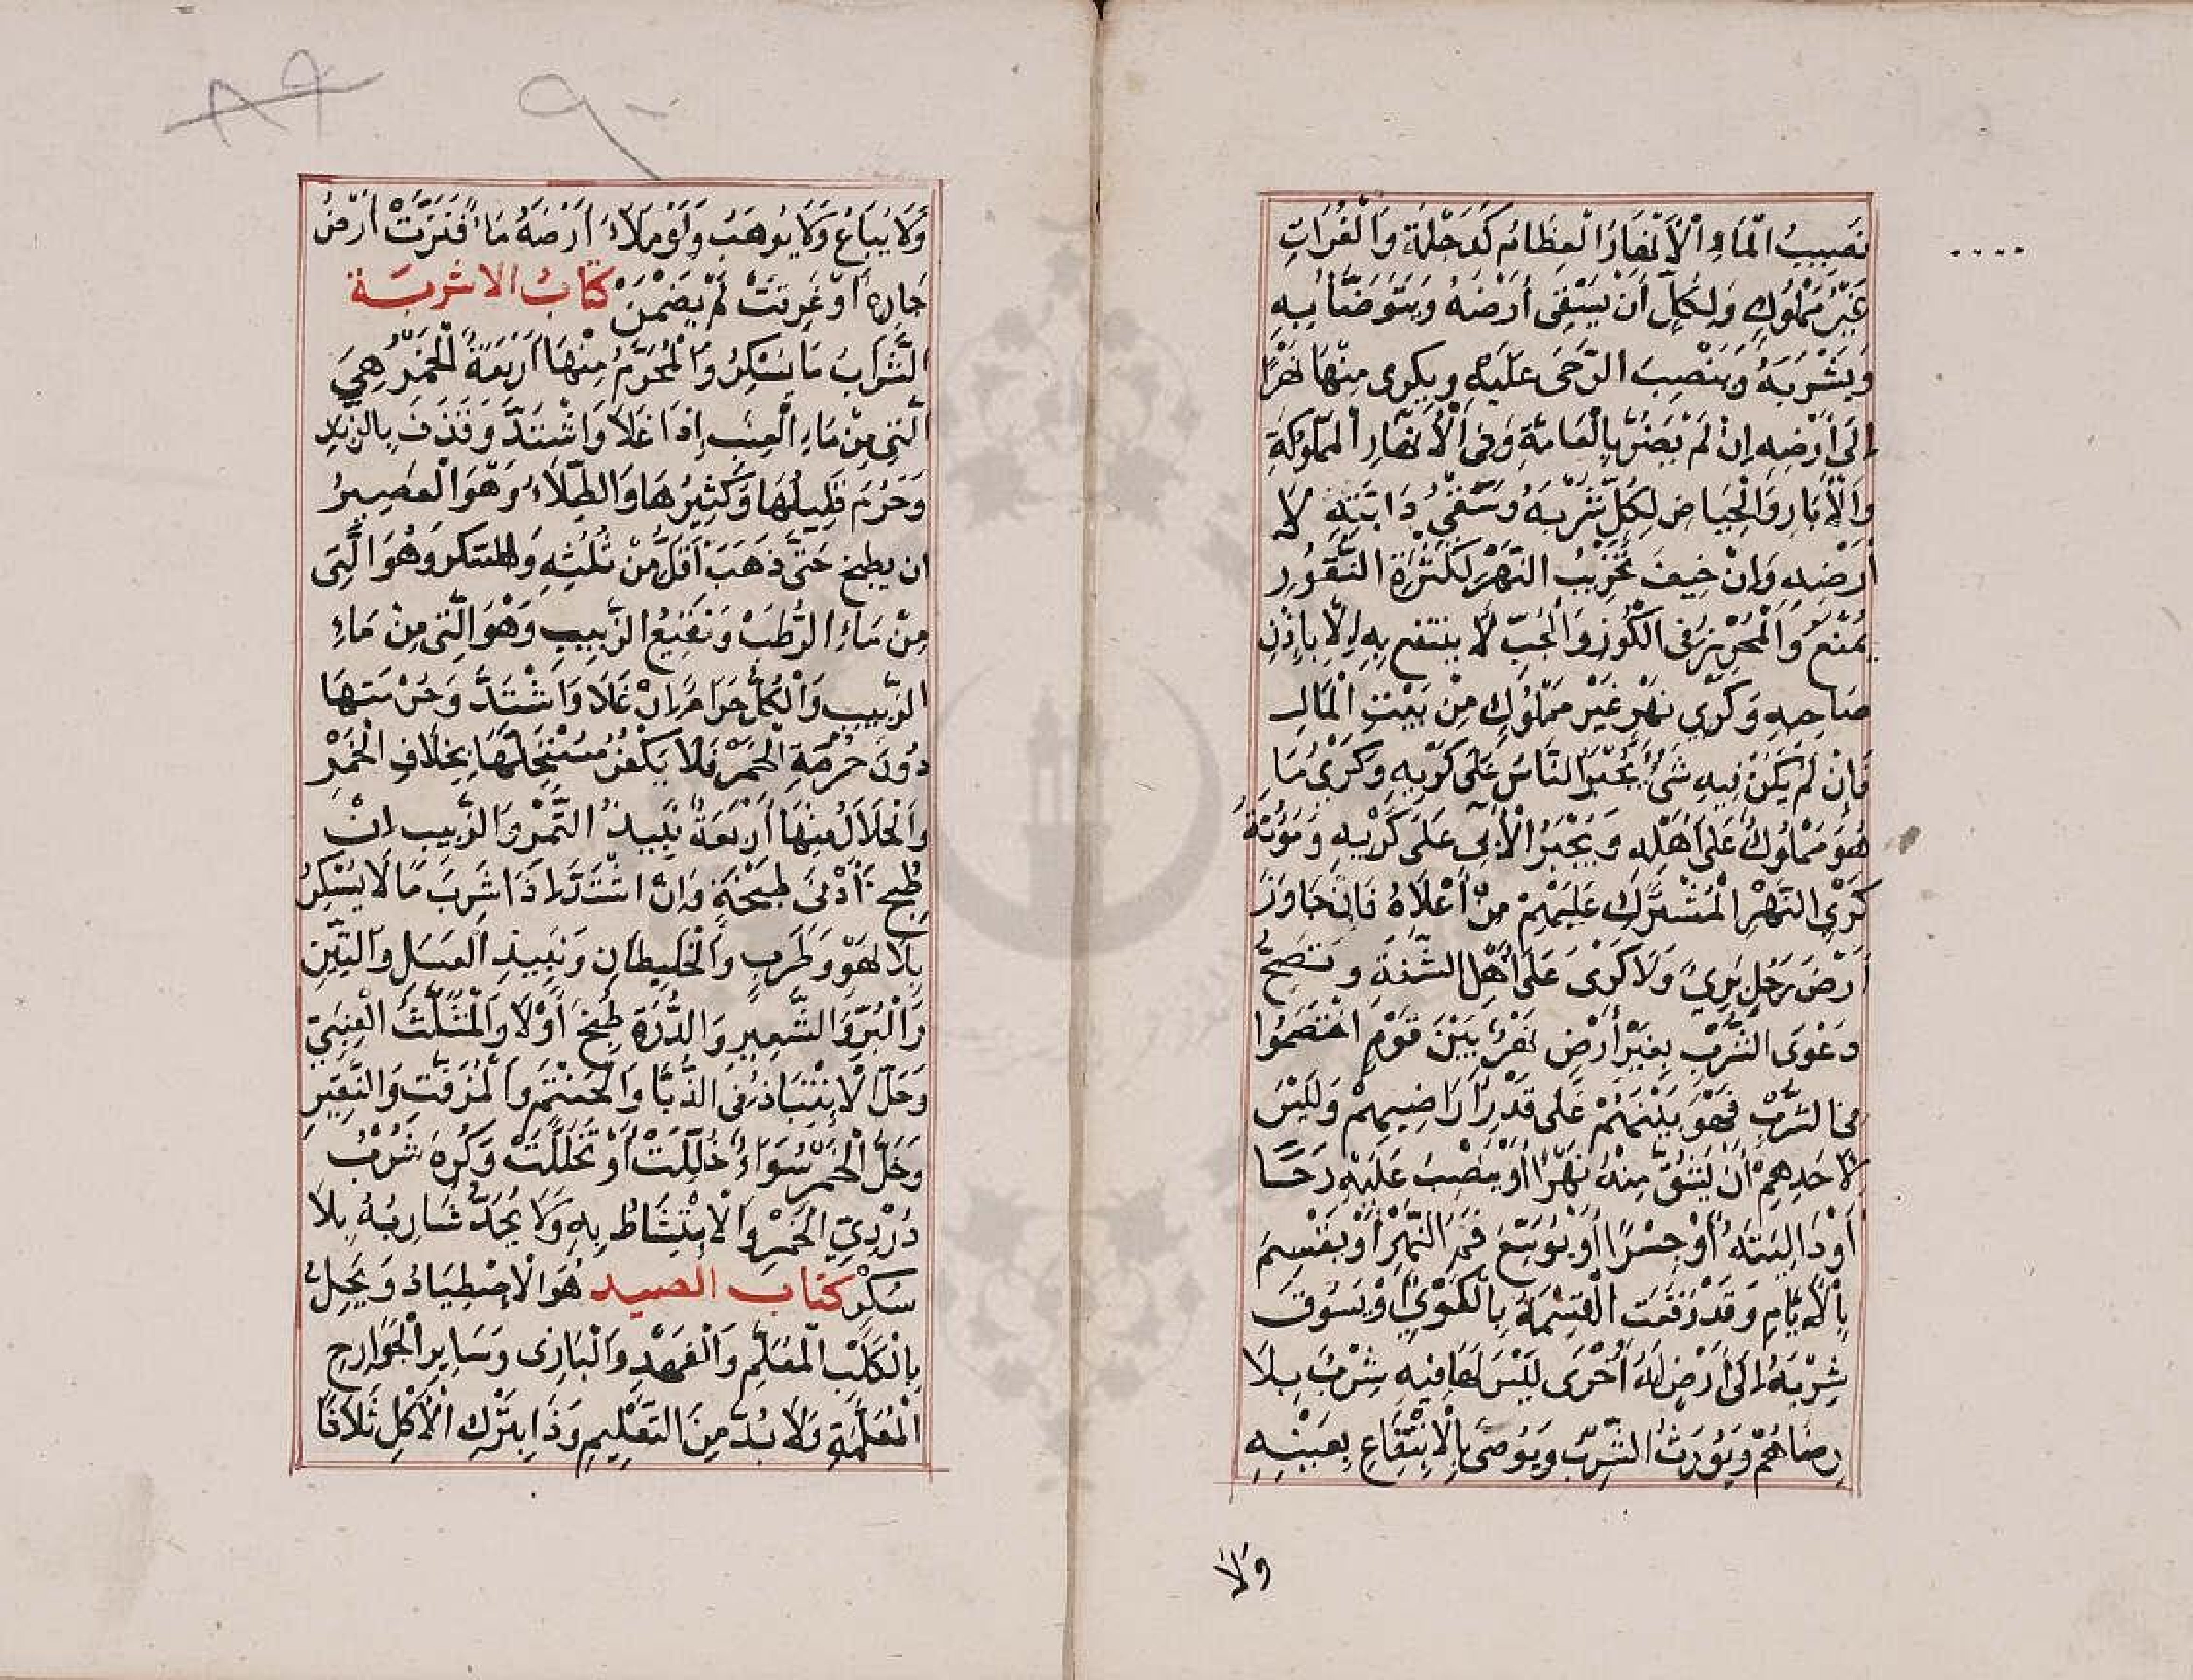 نَصِيبُ الْمَاءِ الْاَنْهَارُ الْعِظَامُ كَدَجْلَةَ وَالْفُرَاتِ
غَيْرُ مَمْلُوكٍ وَلِكُلٍّ أَنْ يَسْقِىَ أَرْضَهُ وَيَتَوَضَّأَ بِهِ
وَيَشْرَبَهُ وَيَنْصِبَ الرَّحَى عَلَيْهِ وَيكرى مِنْهَا نَهْرًا
إِلَى أَرْضِهِ إِنْ لَمْ يَضُرَّ بِالْعَامَّةِ وَفِى الْأَنْهَارِ الْمَمْلُوكَةِ
وَالْآبَارِ وَالْحِيَاضِ لِكُلٍّ شُرْبُهُ وَسَقْىُ دَابَّتِهِ لَا
أَرْضِهِ وَإِنْ خِيفَ تَخْرِيبُ النَّهْرِ لِكَثْرَةِ الْبُقُورِ
يُمْنَعُ وَالْمُحْرِزُ فِى الْكُوزِ وَالْجُبِّ لَا ينتفع بِهِ إِلَّا بِإِذْنِ
صَاحِبِهِ وَكَرْىُ نَهْرٍ غَيْرِ مَمْلُوكٍ مِنْ بَيْتِ الْمَالِ
فَإِنْ لَمْ يَكُنْ فِيهِ شَىْءٌ يُجْبَرُ النَّاسُ عَلَى كَرْيِهِ وَكَرْىُ مَا
هُوَ مَمْلُوكٌ عَلَى أَهْلِهِ وَيُجْبَرُ الْآبِى عَلَى كَرْيِهِ وَمَؤُنَةُ
كَرْىِ النَّهْرِ الْمُشْتَرَكِ عَلَيْهِمْ مِنْ أَعْلَاهُ فَإِنْ جَاوَزَ
أَرْضَ رَجُلٍ بَرِئَ وَلَا كَرْىَ عَلَى أَهْلِ الشَّفَةِ وَتَصِحُّ
دَعْوَى الشِّرْبِ بِغَيْرِ أَرْضٍ نَهْرٌ بَيْنَ قَوْمٍ اخْتَصَمُوا
فِى الشِّرْبِ فَهُوَ بَيْنَهُمْ عَلَى قَدْرِ أَرَاضِيهِمْ وَلَيْسَ
لِأَحَدِهِمْ أَنْ يَشُقَّ مِنْهُ نَهْرًا أَوْ يَنْصِبَ عَلَيْهِ رَحًا
أَوْ دَالِيَتَهُ أَوْ جِسْرًا أَوْ يُوَسِّعَ فَمَ النَّهْرِ أَوْ يَقْسِمَ
بِالْأَيَّامِ وَقَدْ وَقَعَتِ الْقِسْمَةُ بِالْكُوَىِّ أَوْ يَسُوقَ
شِرْبَهُ إِلَى أَرْضٍ لَهُ أُخْرَى لَيْسَ لَهَا فِيهِ شِرْبٌ بِلَا
رِضَاهُمْ وَيُوْرَثُ الشِّرْبُ وَيُوصَى بِالْاِنْتِفَاعِ بِعَيْنِهِ
ولا
٨٩
٩٠
وَلَا يُبَاعُ وَلَا يُوهَبُ وَلَوْ مَلَأَ أَرْضَهُ مَاءً فَنَزَّتْ أَرْضُ
جَارِهِ أَوْ غَرِقَتْ لَمْ يَضْمَنْ كتاب الاشربة
الشَّرَابُ مَا يُسْكِرُ وَالْمُحَرَّمُ مِنْهَا أَرْبَعَةٌ الْخَمْرُ هِىَ
الَّتِى مِنْ مَاءِ الْعِنَبِ إِذَا غَلَا وَاشْتَدَّ وَقَذَفَ بِالزَّبَدِ
وَحَرُمَ قَلِيلُهَا وَكَثِيرُهَا وَالطِّلَاءُ وَهُوَ الْعَصِيرُ
ان يطبخ حَتَّى ذَهَبَ أَقَلُّ مِنْ ثُلُثِهِ وَالمسكر وَهُوَ الَّتِى
مِنْ مَاءِ الرُّطَبِ وَنَقِيعُ الزَّبِيبِ وَهُوَ الَّتِى مِنْ مَاءِ
الزَّبِيبِ وَالْكُلُّ حَرَامٌ إِنْ غَلَا وَاشْتَدَّ وَحُرْمَتُهَا
دُونَ حُرْمَةِ الْخَمْرِ فَلَا يَكْفُرُ مُسْتَحِلُّهَا بِخِلَافِ الْخَمْرِ
وَالْحَلَالُ مِنْهَا أَرْبَعَةٌ نَبِيذُ التَّمْرِ وَالزَّبِيبِ إِنْ
طُبِخَ أَدْنَى طَبْخَةٍ وَإِنْ اشْتَدَّ إِذَا شَرِبَ مَا لَا يُسْكِرُ
بِلَا لَهْوٍ وَطَرَبٍ وَالْخَلِيطَانِ وَنَبِيذُ الْعَسَلِ وَالتِّينِ
وَالْبُرِّ وَالشَّعِيرِ وَالذُّرَةِ طُبِخَ أَوْ لَا وَالْمُثَلَّثُ الْعِنَبِىُّ
وَحَلَّ الْاِنْتِبَاذُ فِى الدُّبَّا وَالْحَنْتَمِ وَالْمُزَفَّتِ وَالنَّقِيرِ
وَخَلُّ الْخَمْرِ سَوَاءٌ خُلِّلَتْ أَوْ تَخَلَّلَتْ وَكُرِهَ شُرْبُ
دُرْدِىِّ الْخَمْرِ وَالْاِمْتِشَاطُ بِهِ وَلَا يُحَدُّ شَارِبُهُ بِلَا
سُكْرٍ كتاب الصيد هُوَ الْاِصْطِيَادُ وَيَحِلُّ
بِالْكَلْبِ الْمُعَلَّمِ وَالْفَهْدِ وَالْبَازِى وَسَايِرِ الْجَوَارِحِ
الْمُعَلَّمَةِ وَلَا بُدَّ مِنَ التَّعْلِيمِ وَذَا بِتَرْكِ الْأَكْلِ ثَلَاثًا